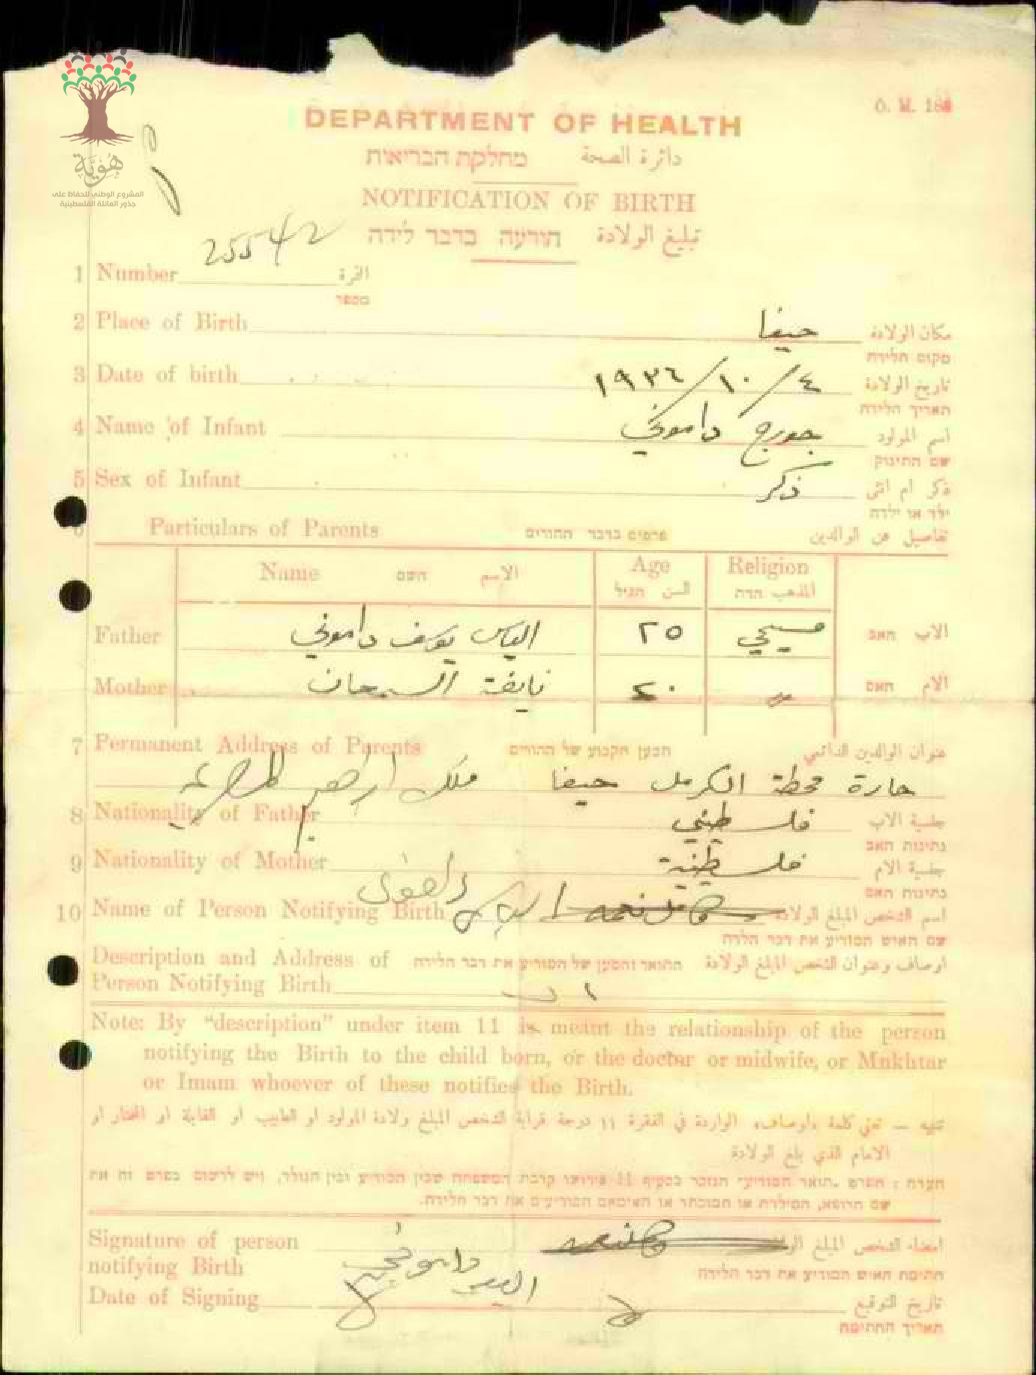 هُوِيَّة
المشروع الوطني للحفاظ على
جذور العائلة الفلسطينية
O. M. 188
DEPARTMENT OF HEALTH
מחלקת הבריאות دائرة الصحة
NOTIFICATION OF BIRTH
הודעה בדבר לידה تبليغ الولادة
25542
1 Number النمرة
מספר
2 Place of Birth حيفا مكان الولادة
מקום הלידה
3 Date of birth ٤/١٠/١٩٣٦ تاريخ الولادة
תאריך הלידה
4 Name of Infant جورج داموني اسم المولود
שם התינוק
5 Sex of Infant ذكر ذكر ام انثى
ילד או ילדה
6 Particulars of Parents פרטים בדבר ההורים تفاصيل عن الوالدين
Name השם الاسم Age السن הגיל Religion المذهب הדת
Father الياس يوسف داموني ٢٥ مسيحي האב الاب
Mother نايفة السمعان ٢٠ " האם الام
7 Permanent Address of Parents המען הקבוע של ההורים عنوان الوالدين الدائمي
حارة محطة الكرمل حيفا ملك ابراهيم
8 Nationality of Father فلسطيني جنسية الاب
נתינות האב
9 Nationality of Mother فلسطينية جنسية الام
נתינות האם
10 Name of Person Notifying Birth الياس داموني اسم الشخص المبلغ الولادة
שם האיש המודיע את דבר הלדה
Description and Address of התואר והמען של המודיע את דבר הלידה اوصاف وعنوان الشخص المبلغ الولادة
Person Notifying Birth اب
Note: By "description" under item 11 is meant the relationship of the person
notifying the Birth to the child born, or the doctor or midwife, or Mukhtar
or Imam whoever of these notifies the Birth.
تنبيه — تعني كلمة «اوصاف» الواردة في الفقرة ١١ درجة قرابة الشخص المبلغ ولادة المولود او الطبيب او القابلة او المختار او
الامام الذي بلغ الولادة
הערה: הפרט "תואר המודיע" הנזכר בסעיף 11 פירושו קרבת המשפחה שבין המודיע ובין הנולד, ויש לרשום בפרט זה את
שם הרופא, המילדת או המוכתר או האימאם המודיעים את דבר הלידה.
Signature of person امضاء الشخص المبلغ الولادة
notifying Birth الياس داموني חתימת האיש המודיע את דבר הלידה
Date of Signing تاريخ التوقيع
תאריך החתימה